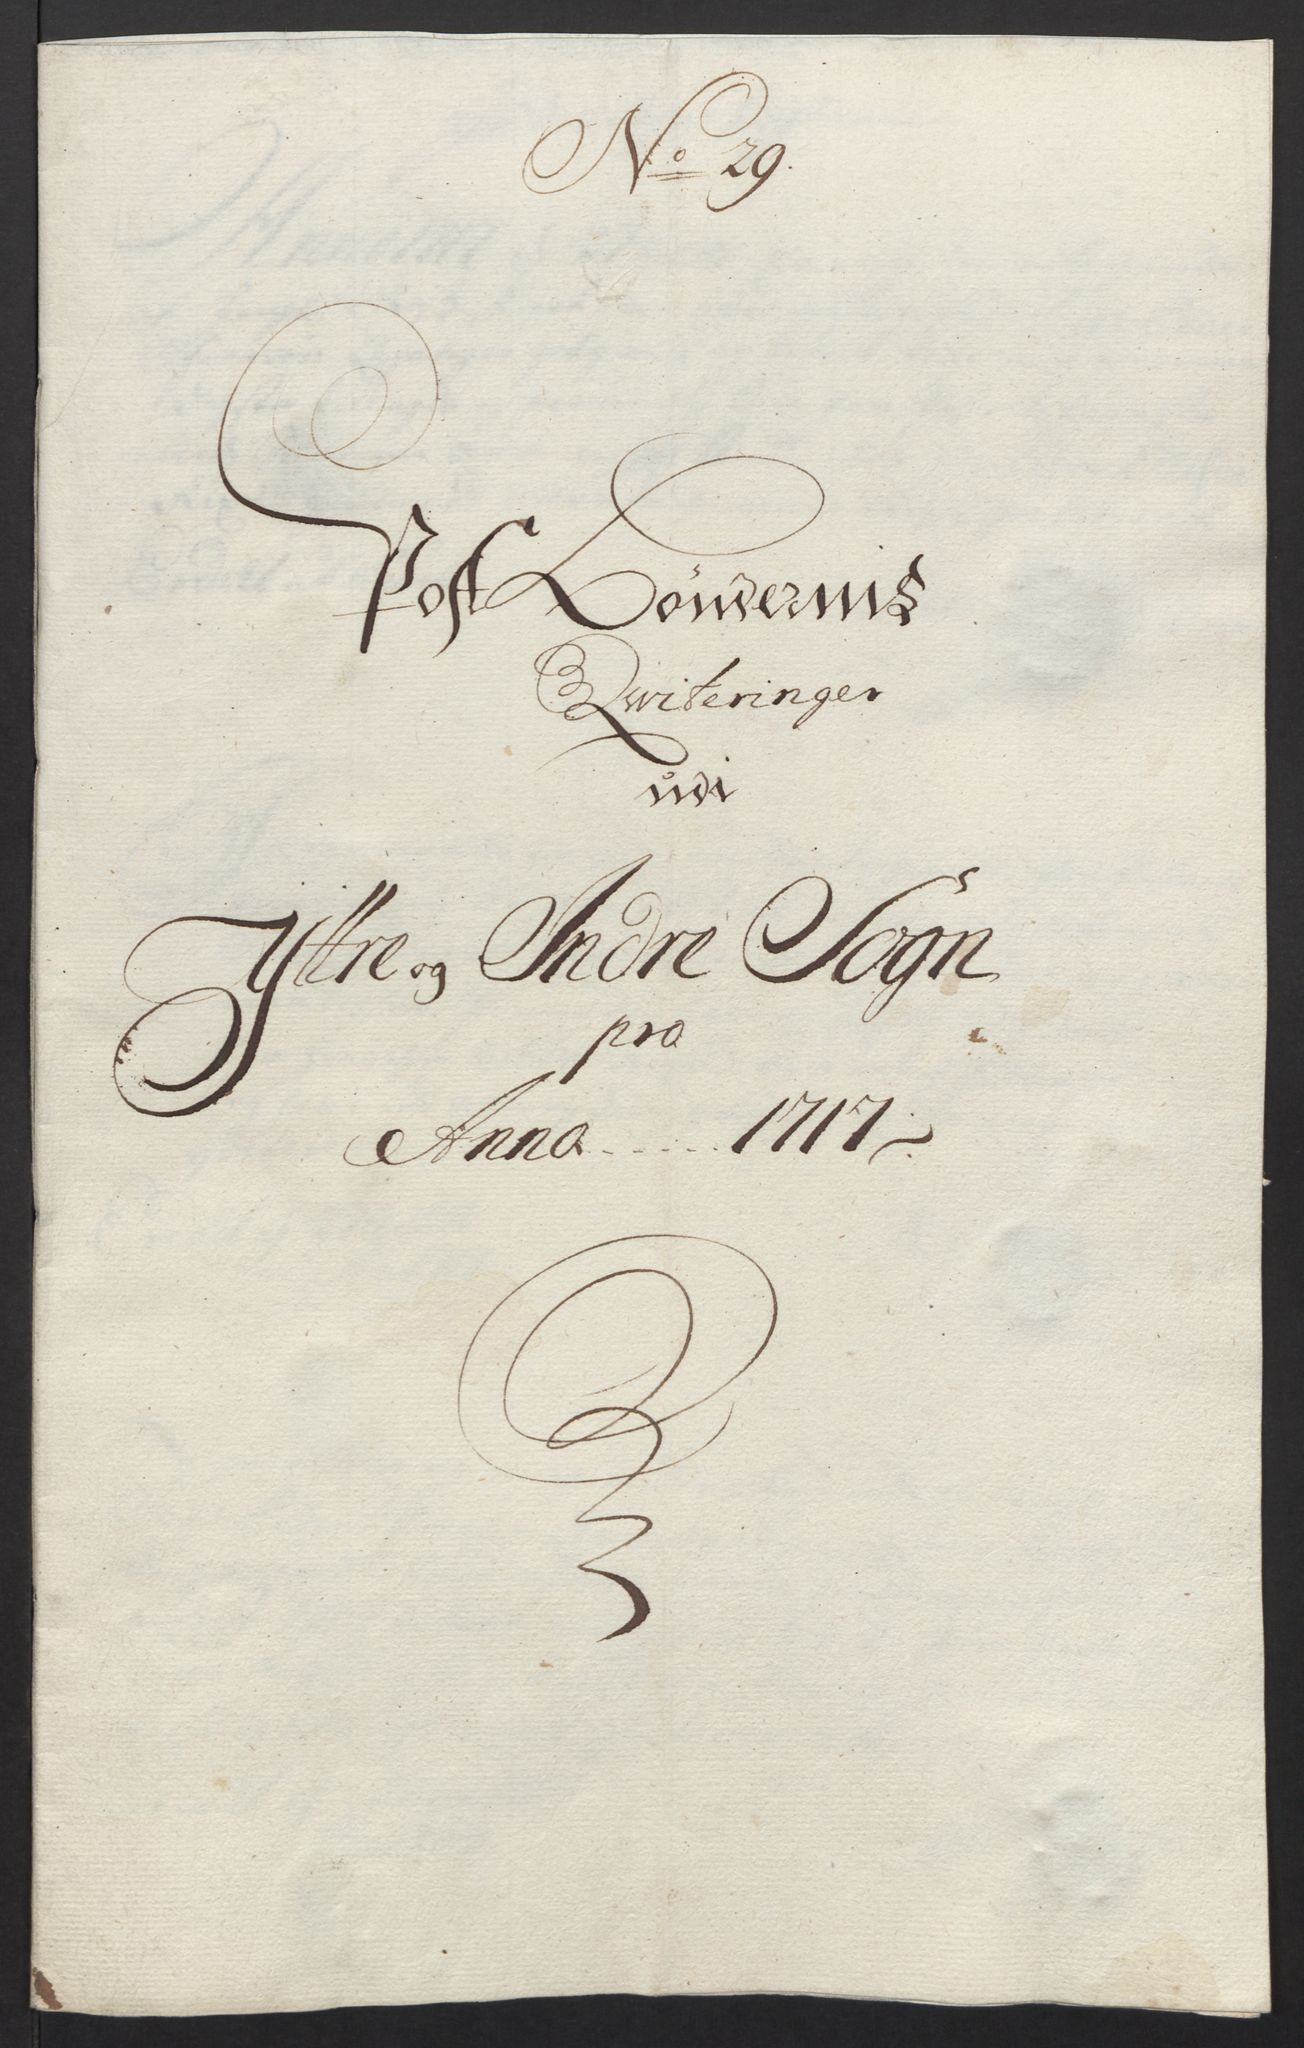 No 29.
Post Bönderniß
Qwiteringer
udi
Yttre og Indre Sogn
pro
Anno ..... 1717